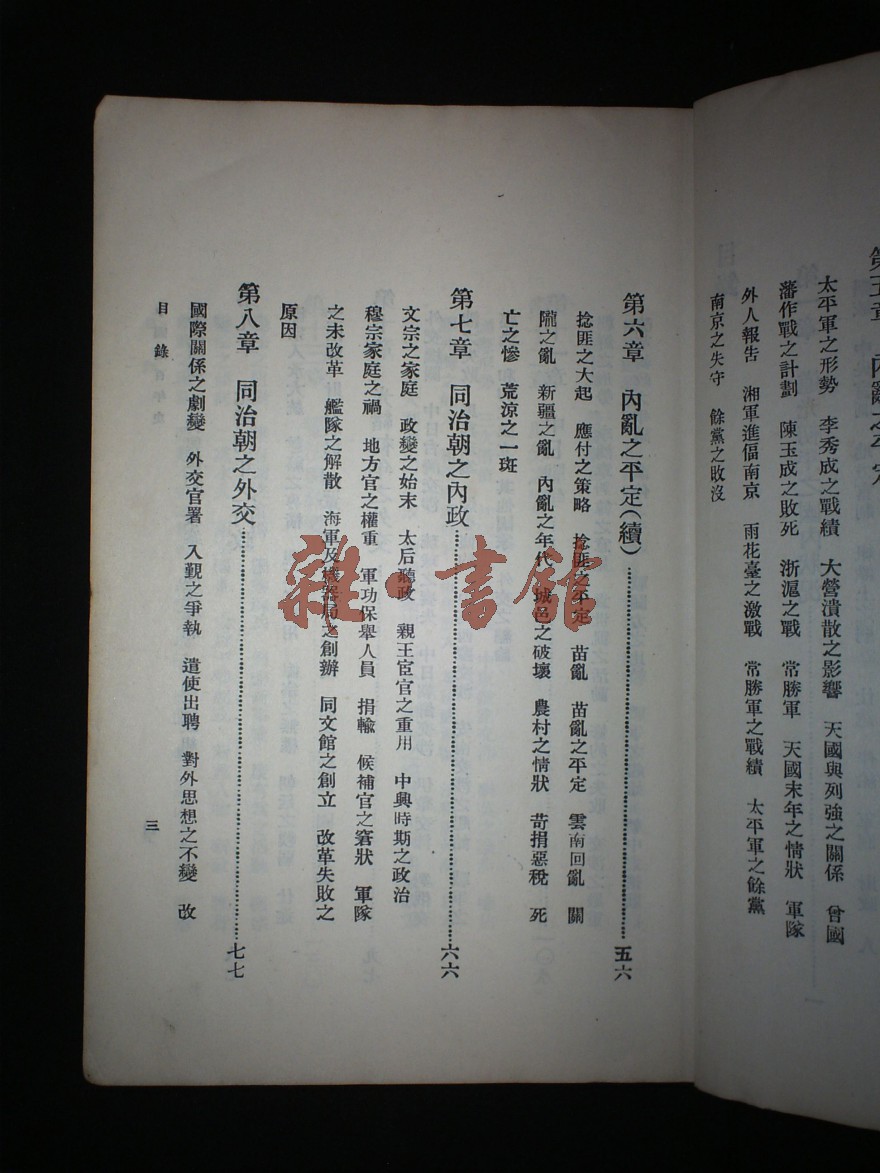 第五章 內亂之平定
太平軍之形勢 李秀成之戰績 大營潰散之影響 天國與列強之關係 曾國
藩作戰之計劃 陳玉成之敗死 浙滬之戰 常勝軍 天國末年之情狀 軍隊
外人報告 湘軍進偪南京 雨花臺之激戰 常勝軍之戰績 太平軍之餘黨
南京之失守 餘黨之敗沒
第六章 內亂之平定(續)……五六
捻匪之大起 應付之策略 捻匪之平定 苗亂 苗亂之平定 雲南回亂 關
隴之亂 新疆之亂 內亂之年代 城邑之破壞 農村之情狀 苛捐惡稅 死
亡之慘 荒涼之一斑
第七章 同治朝之內政……六六
文宗之家庭 政變之始末 太后聽政 親王宦官之重用 中興時期之政治
穆宗家庭之禍 地方官之權重 軍功保舉人員 捐輸 候補官之窘狀 軍隊
之未改革 艦隊之解散 海軍及機器局之創辦 同文館之創立 改革失敗之
原因
第八章 同治朝之外交……七七
國際關係之劇變 外交官署 入覲之爭執 遣使出聘 對外思想之不變 改
目錄
三
雜·書館